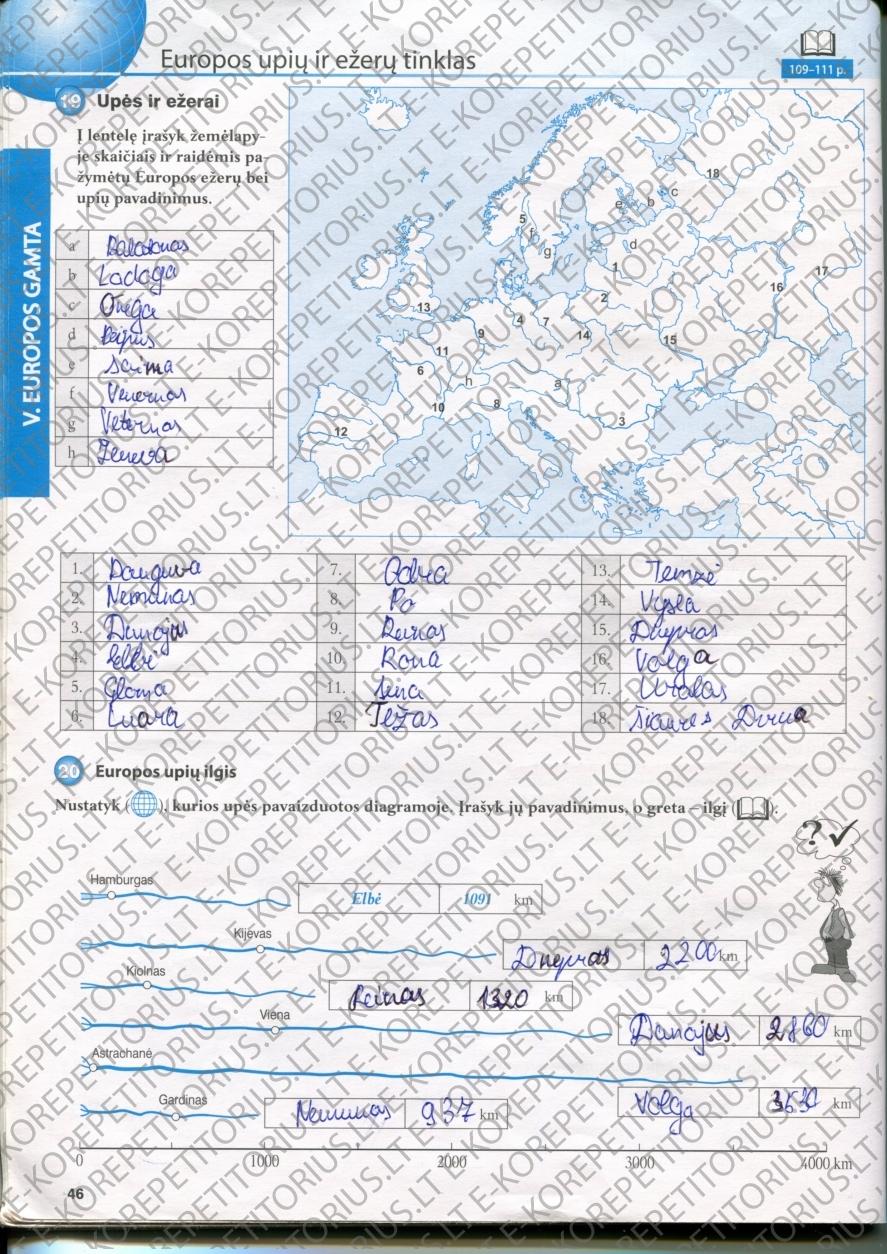 Europos upių ir ežerų tinklas
109–111 p.
19 Upės ir ežerai
Į lentelę įrašyk žemėlapy-
je skaičiais ir raidėmis pa-
žymėtų Europos ežerų bei
upių pavadinimus.
V. EUROPOS GAMTA
a Balatonas
b Ladoga
c Onega
d Peipus
e Saima
f Venernas
g Veternas
h Ženeva
18
c
b
e
5
f
d
g
1
17
16
2
13
4
7
9
14
15
11
6
h
a
10
8
3
12
1. Dauguva 7. Odra 13. Temzė
2. Nemunas 8. Po 14. Vysla
3. Dunojus 9. Reinas 15. Dnepras
4. Elbė 10. Rona 16. Volga
5. Gloma 11. Sena 17. Uralas
6. Luara 12. Težas 18. Šiaurės Dvina
20 Europos upių ilgis
Nustatyk ( ), kurios upės pavaizduotos diagramoje. Įrašyk jų pavadinimus, o greta – ilgį ( ).
? ✓
Hamburgas
Elbė 1091 km
Kijevas
Dnepras 2200 km
Kiolnas
Reinas 1320 km
Viena
Dunojus 2860 km
Astrachanė
Volga 3530 km
Gardinas
Nemunas 937 km
0 1000 2000 3000 4000 km
46
E-KOREPETITORIUS.LT